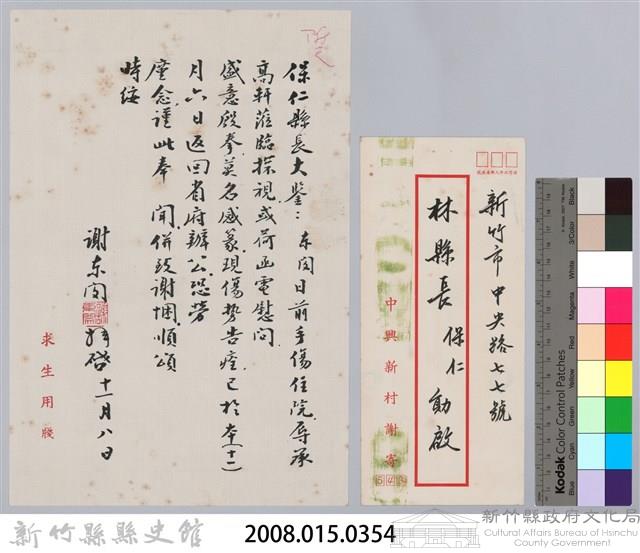 保仁縣長大鑒：東閔日前手傷住院辱承
高軒蒞臨探視或荷函電慰問
盛意殷拳莫名感篆現傷勢告痊已於本(十一)
月六日返回省府辦公恐勞
廑念謹此奉 聞併致謝悃順頌
時綏
謝東閔
拜啓十一月八日
求生用牋
新竹市中央路七七號
林縣長 保仁 勛啟
中興新村謝寄
540
Kodak Color Control Patches
Blue
Cyan
Green
Yellow
Red
Magenta
White
3/Color
Black
新竹縣縣史館
2008.015.0354
新竹縣政府文化局
Cultural Affairs Bureau of Hsinchu
County Government